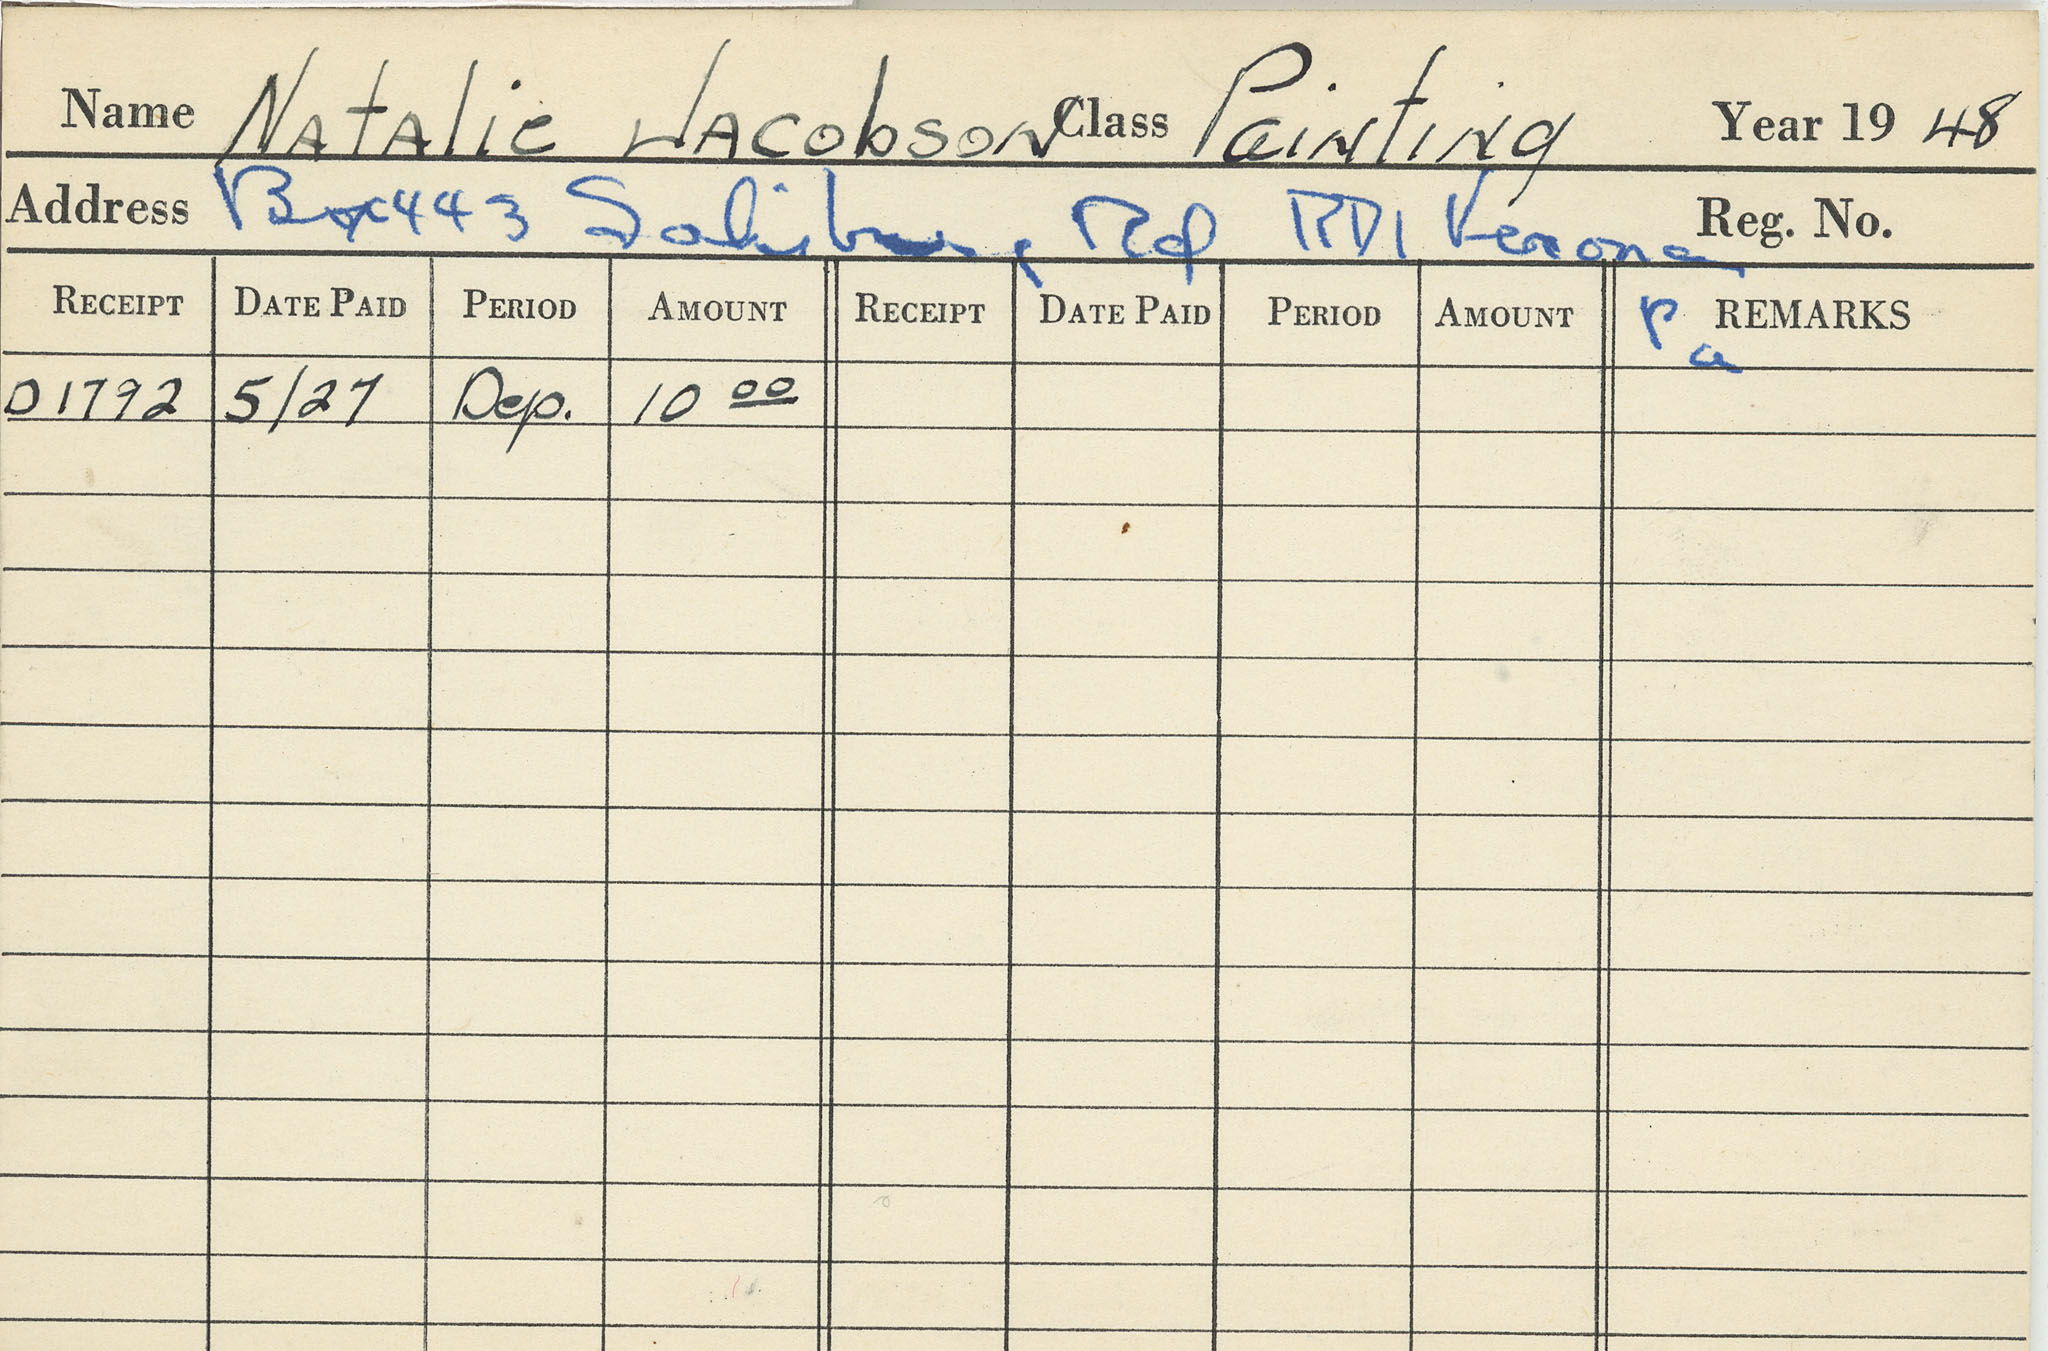 Name Natalie Jacobson Class Painting Year 19 48
Address Box 443 Salisbury Rd RD1 Verona, Reg. No.
RECEIPT DATE PAID PERIOD AMOUNT RECEIPT DATE PAID PERIOD AMOUNT Pa REMARKS
D1792 5/27 Dep. 10 00